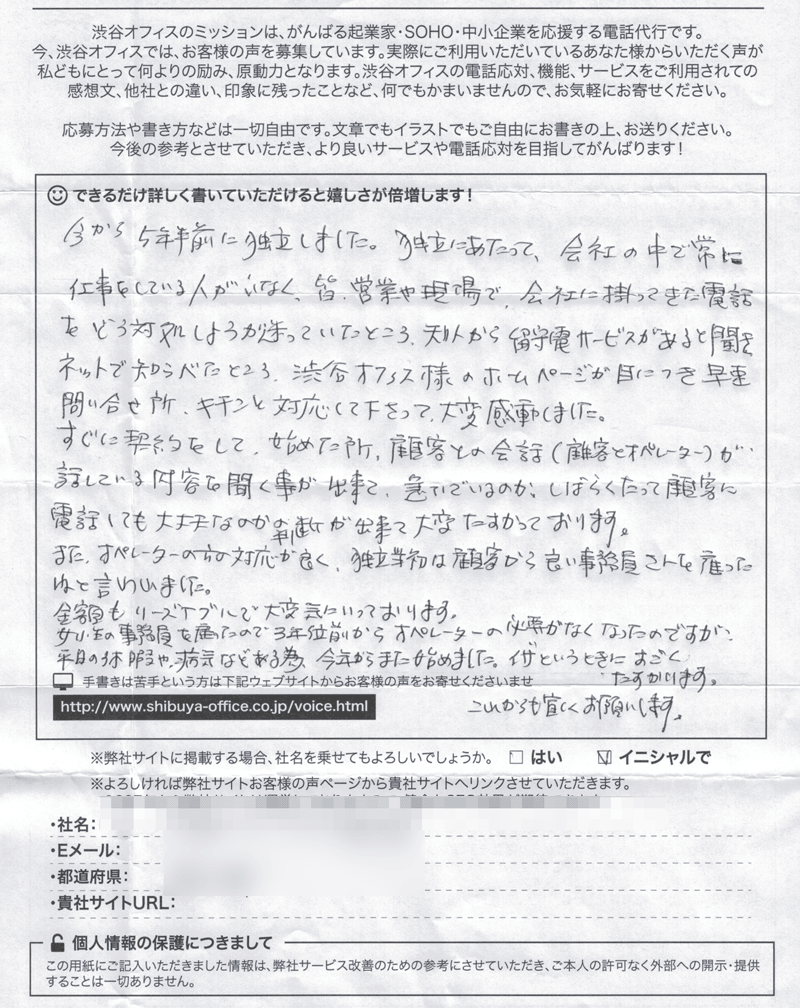 渋谷オフィスのミッションは、がんばる起業家・SOHO・中小企業を応援する電話代行です。
今、渋谷オフィスでは、お客様の声を募集しています。実際にご利用いただいているあなた様からいただく声が
私どもにとって何よりの励み、原動力となります。渋谷オフィスの電話応対、機能、サービスをご利用されての
感想文、他社との違い、印象に残ったことなど、何でもかまいませんので、お気軽にお寄せください。
応募方法や書き方などは一切自由です。文章でもイラストでもご自由にお書きの上、お送りください。
今後の参考とさせていただき、より良いサービスや電話応対を目指してがんばります!
できるだけ詳しく書いていただけると嬉しさが倍増します!
今から5年半前に独立しました。独立にあたって、会社の中で常に
仕事をしている人がいなく、皆、営業や現場で、会社に掛ってきた電話
をどう対処しようか迷っていたところ、知人から留守電サービスがあると聞き
ネットで知らべたところ、渋谷オフィス様のホームページが目につき早速
問い合せ所、キチンと対応して下さって、大変感動しました。
すぐに契約をして、始めた所、顧客との会話(顧客とオペレーター)が
話している内容を聞く事が出来て、急いでいるのか、しばらくたって顧客に
電話しても大丈夫なのかの判断が出来て大変たすかっております。
また、オペレーターの方の対応が良く、独立当初は顧客から良い事務員さんを雇った
ねと言われました。
金額もリーズナブルで大変気にいっております。
女性の事務員を雇ったので3年位前からオペレーターの必要がなくなったのですが、
平日の休暇や、病気などある為、今年からまた始めました。イザというときにすごく
たすかります。
手書きは苦手という方は下記ウェブサイトからお客様の声をお寄せくださいませ
http://www.shibuya-office.co.jp/voice.html
これからも宜しくお願いします。
※弊社サイトに掲載する場合、社名を乗せてもよろしいでしょうか。 □ はい ☑ イニシャルで
※よろしければ弊社サイトお客様の声ページから貴社サイトへリンクさせていただきます。
・社名:
・Eメール:
・都道府県:
・貴社サイトURL:
個人情報の保護につきまして
この用紙にご記入いただきました情報は、弊社サービス改善のための参考にさせていただき、ご本人の許可なく外部への開示・提供
することは一切ありません。